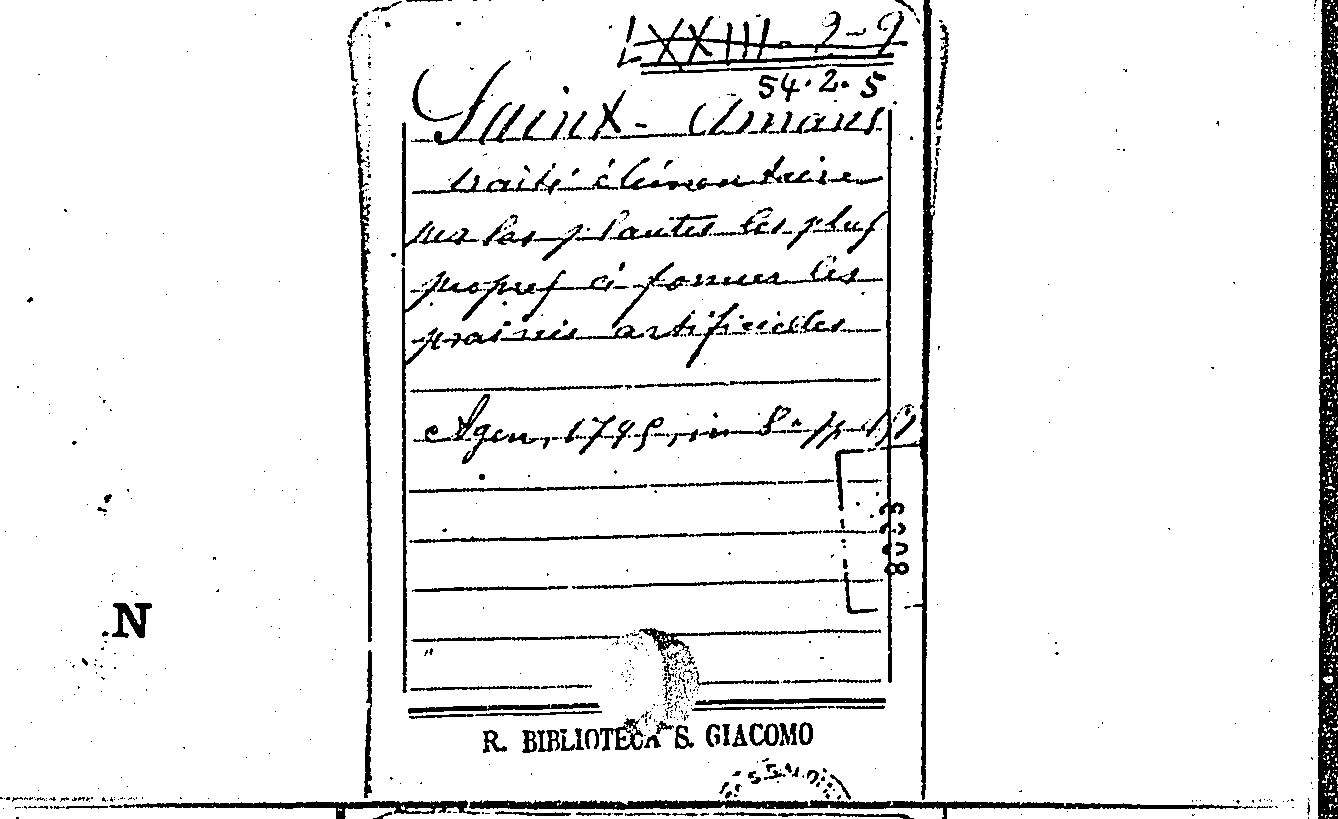 LXXIII-9-9
54.2.5
Saint-Amans
traité élémentaire
sur les plantes les plus
propres à former les
prairies artificielles
Agen, 1795, in 8° pp.
8023
N
R. BIBLIOTECA S. GIACOMO